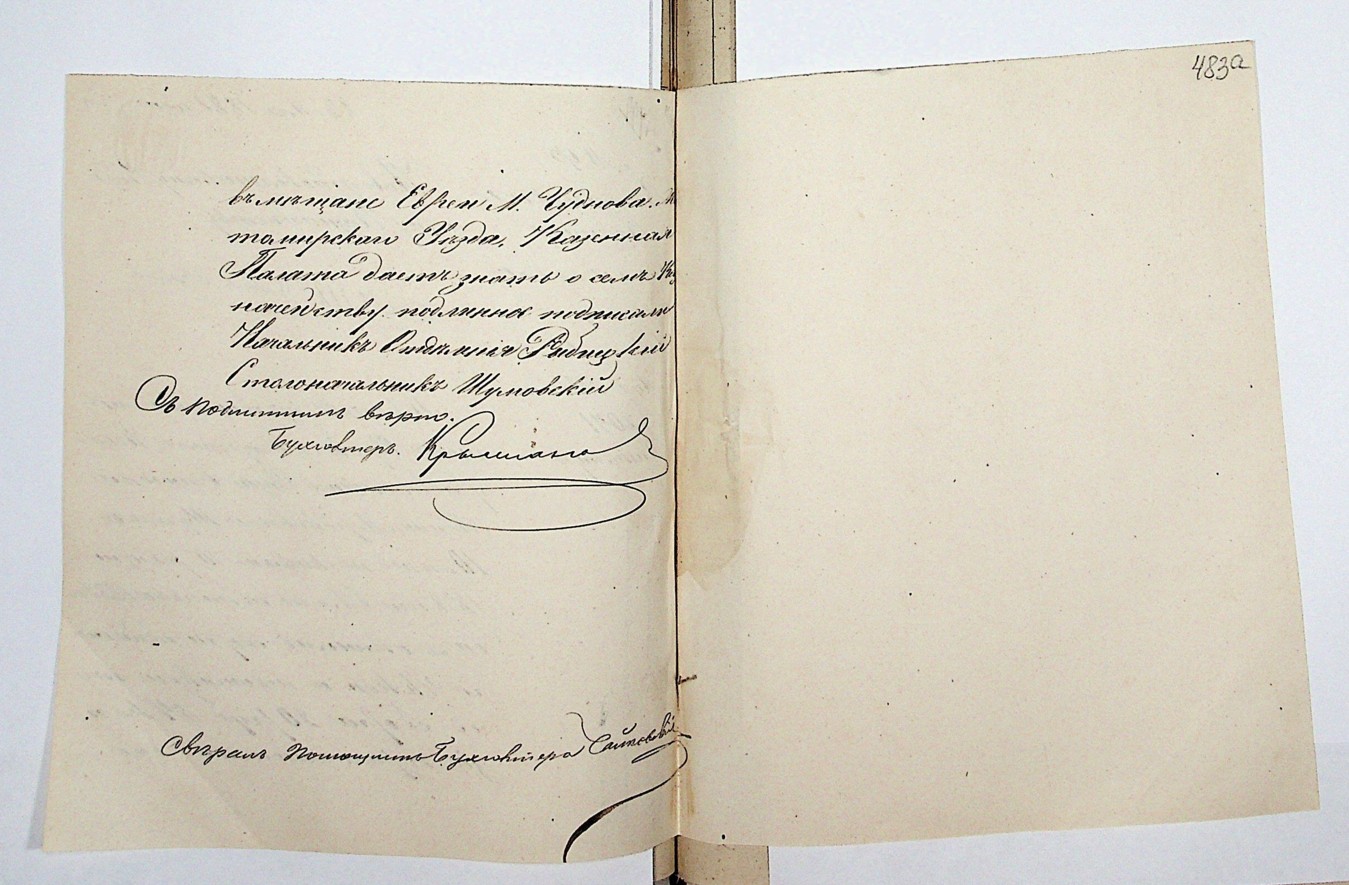 въ мѣщане Евреи М. Чуднова. Жи
томирскаго Уѣзда. Казенная
Палата даетъ знать о семъ Каз
начейству. подлинное подписали
Начальникъ Отдѣленія
Столоначальникъ Шумовскій
Съ подлиннымъ вѣрно.
Бухгалтеръ.
Свѣрялъ Помощникъ Бухгалтера
483а